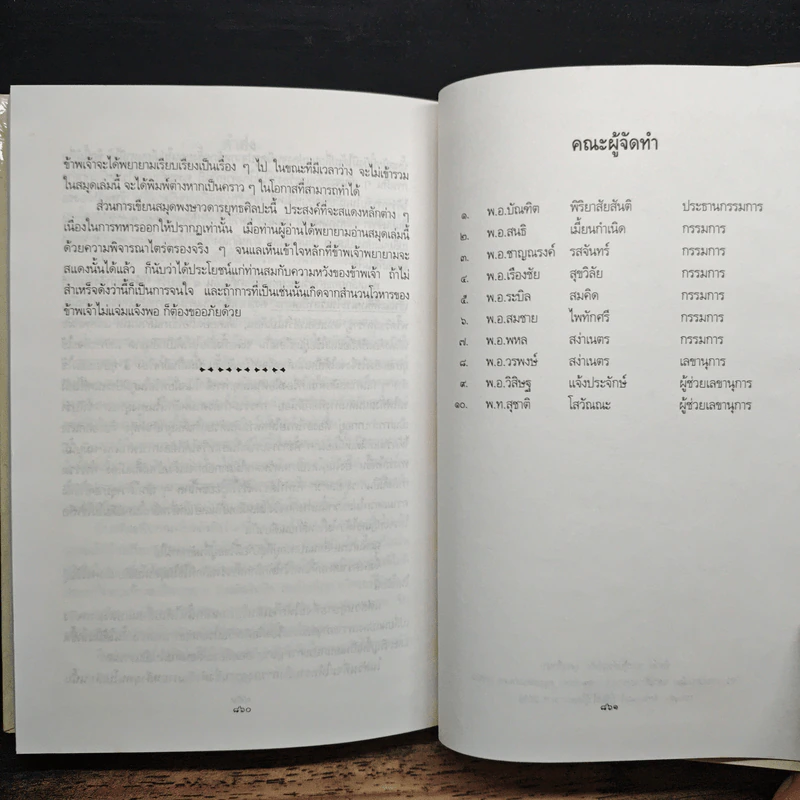 ข้าพเจ้าจะได้พยายามเรียบเรียงเป็นเรื่อง ๆ ไป ในขณะที่มีเวลาว่าง จะไม่เข้ารวม
ในสมุดเล่มนี้ จะได้พิมพ์ต่างหากเป็นคราว ๆ ในโอกาสที่สามารถทำได้
ส่วนการเขียนสมุดพงษาวดารยุทธศิลปะนี้ ประสงค์ที่จะสแดงหลักต่าง ๆ
เนื่องในการทหารออกให้ปรากฏเท่านั้น เมื่อท่านผู้อ่านได้พยายามอ่านสมุดเล่มนี้
ด้วยความพิจารณาไตร่ตรองจริง ๆ จนแลเห็นเข้าใจหลักที่ข้าพเจ้าพยายามจะ
สแดงนั้นได้แล้ว ก็นับว่าได้ประโยชน์แก่ท่านสมกับความหวังของข้าพเจ้า ถ้าไม่
สำเหร็จดังว่านี้ก็เป็นการจนใจ และถ้าการที่เป็นเช่นนั้นเกิดจากสำนวนโวหารของ
ข้าพเจ้าไม่แจ่มแจ้งพอ ก็ต้องขออภัยด้วย
๘๖๐
คณะผู้จัดทำ
๑. พ.อ.บัณฑิต พิริยาสัยสันติ ประธานกรรมการ
๒. พ.อ.สนธิ เมี้ยนกำเนิด กรรมการ
๓. พ.อ.ชาญณรงค์ รสจันทร์ กรรมการ
๔. พ.อ.เรืองชัย สุขวิลัย กรรมการ
๕. พ.อ.ระบิล สมคิด กรรมการ
๖. พ.อ.สมชาย ไพทักศรี กรรมการ
๗. พ.อ.พหล สง่าเนตร กรรมการ
๘. พ.อ.วรพงษ์ สง่าเนตร เลขานุการ
๙. พ.อ.วิสิษฐ แจ้งประจักษ์ ผู้ช่วยเลขานุการ
๑๐. พ.ท.สุชาติ โสวัณณะ ผู้ช่วยเลขานุการ
๘๖๑